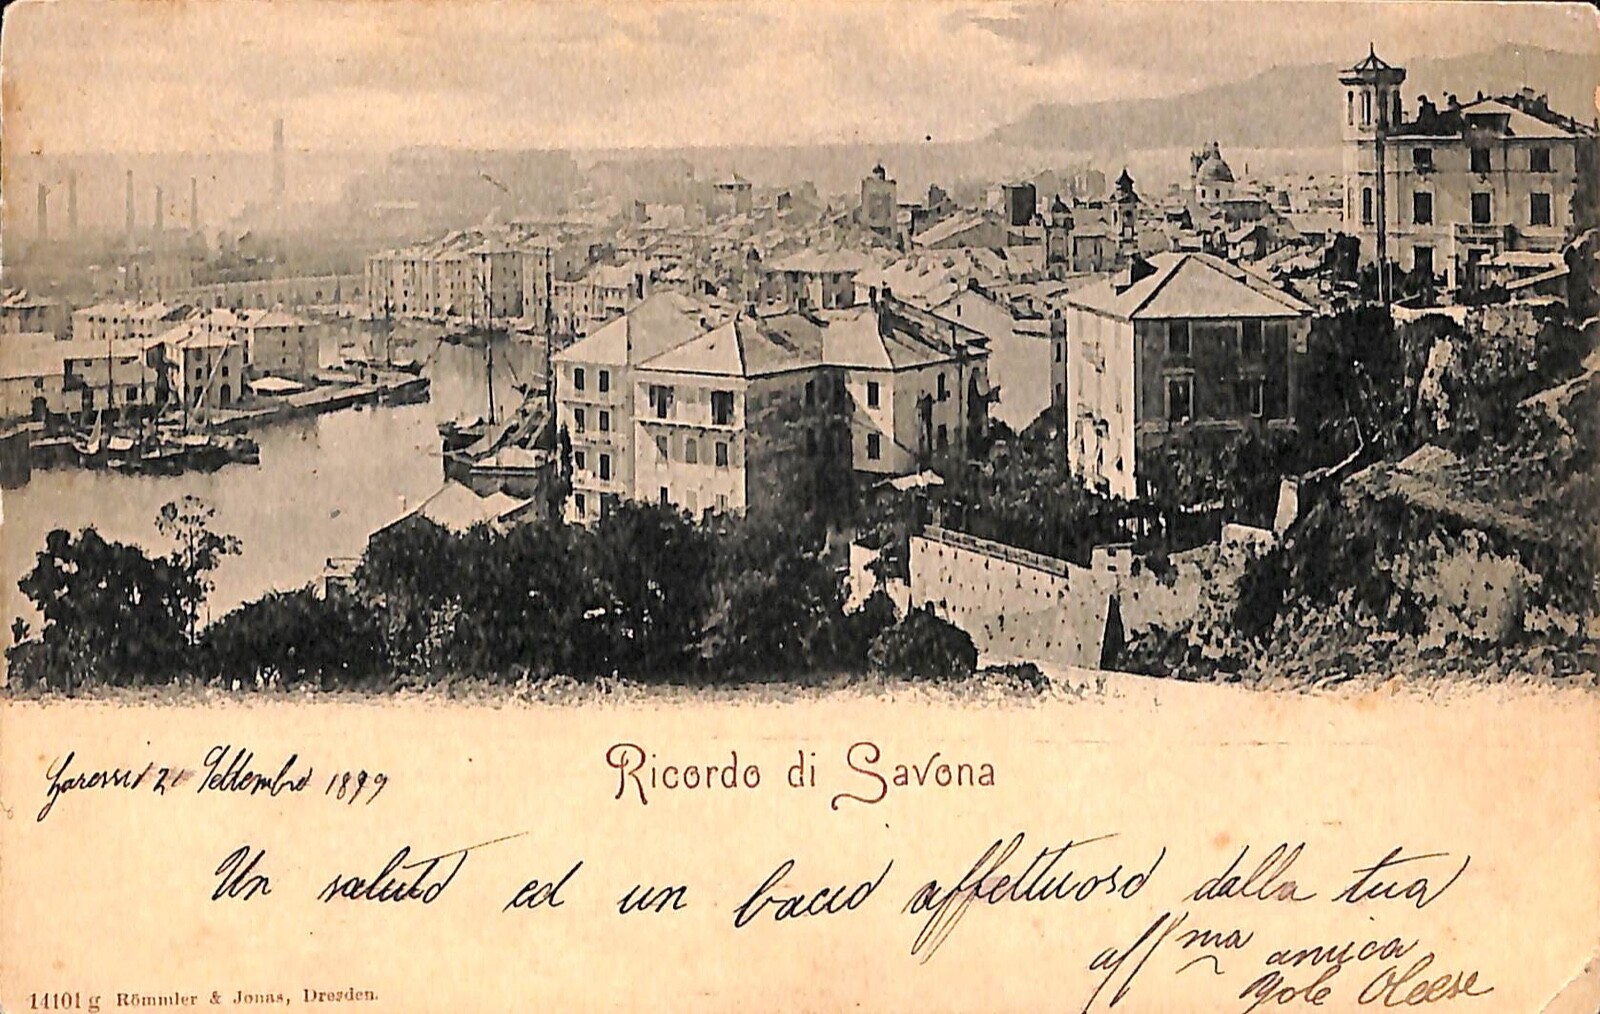 Ricordo di Savona
Garessio 21 Settembre 1899
Un saluto ed un bacio affettuoso dalla tua
aff.ma amica
Yole
14101 g Römmler & Jonas, Dresden.